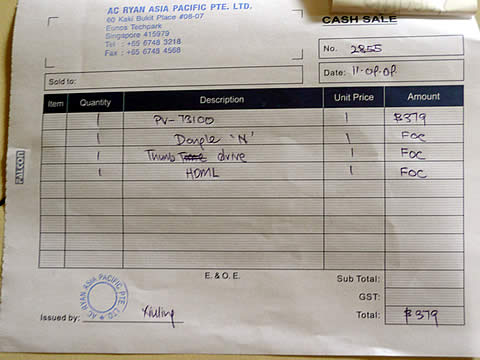 AC RYAN ASIA PACIFIC PTE. LTD.
60 Kaki Bukit Place #08-07
Eunos Techpark
Singapore 415979
Tel : +65 6748 3218
Fax : +65 6748 4568
CASH SALE
No. 2855
Date:
Sold to:
Item Quantity Description Unit Price Amount
1 PV-73100 1 $379
1 Dongle 'N' 1 FOC
1 Thumb drive 1 FOC
1 HDMI 1 FOC
FALCON
E. & O. E.
Sub Total:
GST:
Total: $379
AC RYAN ASIA PACIFIC PTE LTD
Issued by: Xiuling